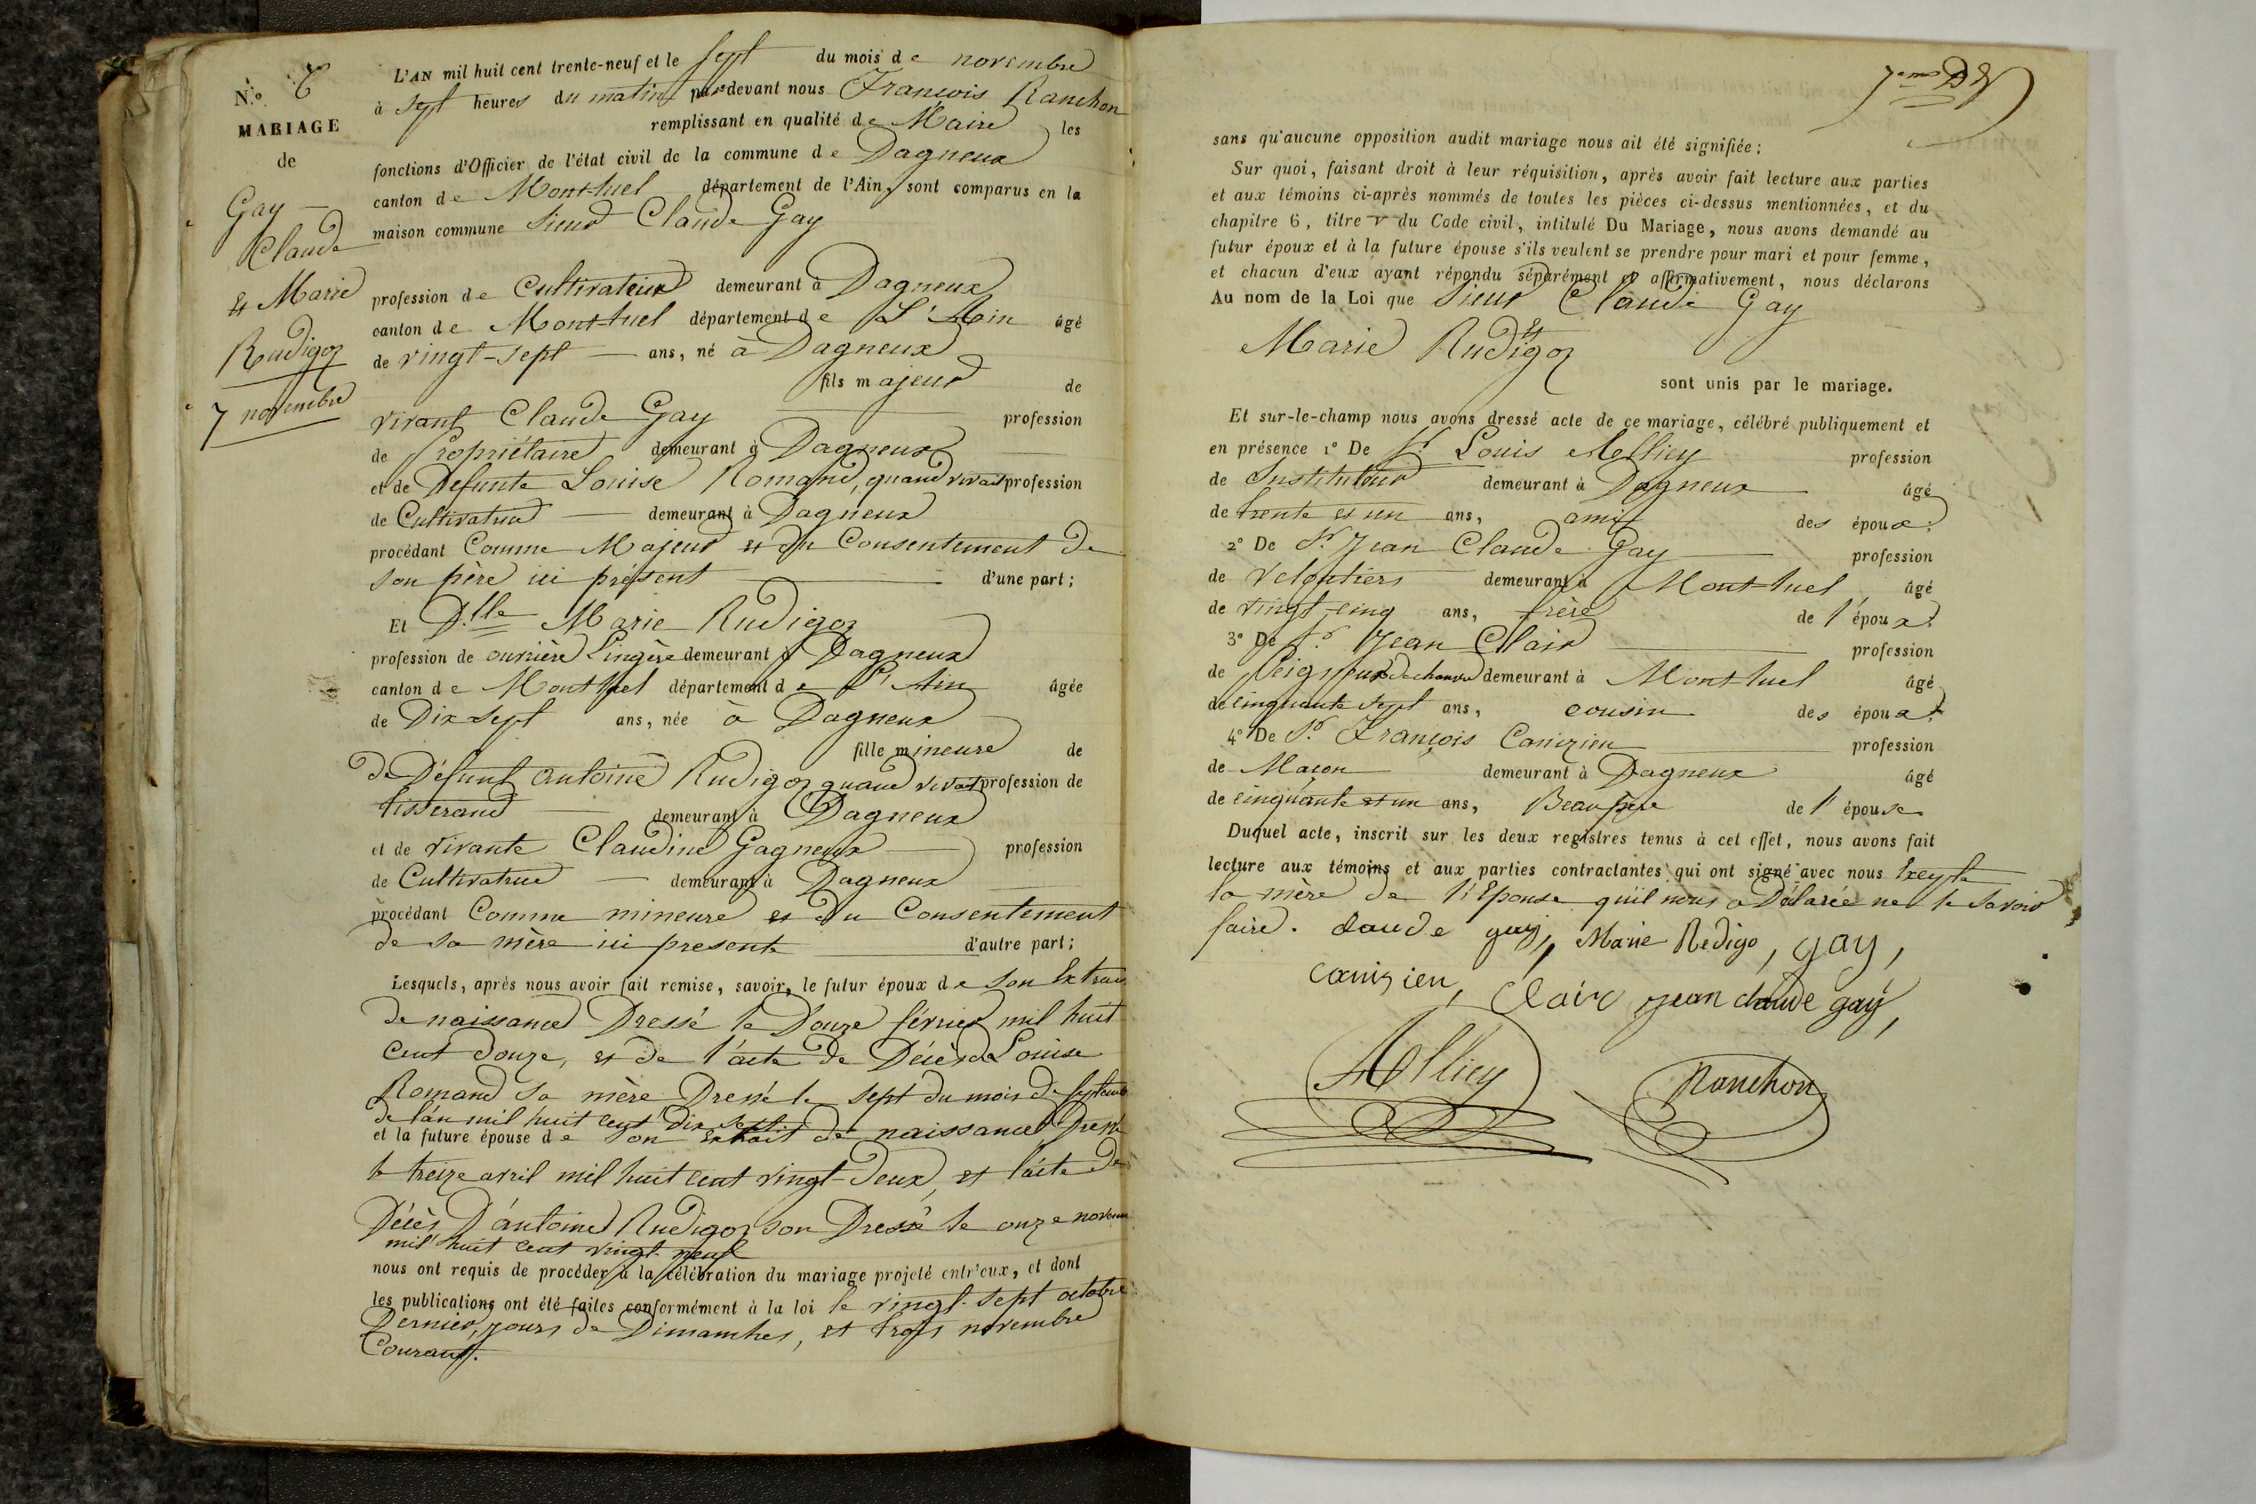 N.o 6
MARIAGE
de
Gay
Claude
et Marie
Rudigoz
7 novembre
L'AN mil huit cent trente-neuf et le sept du mois de novembre
à sept heures du matin pardevant nous François Ranchon
remplissant en qualité de Maire les
fonctions d'Officier de l'état civil de la commune de Dagneux
canton de Montluel département de l'Ain, sont comparus en la
maison commune sieur Claude Gay
profession de Cultivateur demeurant à Dagneux
canton de Montluel département de L'Ain âgé
de vingt-sept ans, né à Dagneux
fils majeur de
vivant Claude Gay profession
de Propriétaire demeurant à Dagneux
et de Defunte Louise Romand, quand vivait profession
de Cultivatrice demeurant à Dagneux
procédant Comme Majeur et du Consentement de
son père ici présent d'une part;
Et D.lle Marie Rudigoz
profession de ouvrière Lingère demeurant à Dagneux
canton de Montluel département de L'Ain âgée
de Dix sept ans, née à Dagneux
fille mineure de
de Défunt antoine Rudigoz quand vivait profession de
tisserand demeurant à Dagneux
et de vivante Claudine Gagneux profession
de Cultivatrice demeurant à Dagneux
procédant Comme mineure et du Consentement
de sa mère ici presente d'autre part;
Lesquels, après nous avoir fait remise, savoir, le futur époux de son Extrait
de naissance Dressé le Douze février mil huit
Cent douze, et de l'acte de Décès de Louise
Romand sa mère Dressé le sept du mois de septembre
de l'an mil huit cent Dix sept
et la future épouse de son extrait de naissance Dressé
le treize avril mil huit cent vingt-Deux, et l'acte de
Décès D'antoine Rudigoz son Dressé le onze novembre
mil huit cent vingt neuf
nous ont requis de procéder à la célébration du mariage projeté entr'eux, et dont
les publications ont été faites conformément à la loi le vingt-sept octobre
Dernier, jours de Dimanches, et trois novembre
Courant.
7eme
sans qu'aucune opposition audit mariage nous ait été signifiée;
Sur quoi, faisant droit à leur réquisition, après avoir fait lecture aux parties
et aux témoins ci-après nommés de toutes les pièces ci-dessus mentionnées, et du
chapitre 6, titre V du Code civil, intitulé Du Mariage, nous avons demandé au
futur époux et à la future épouse s'ils veulent se prendre pour mari et pour femme,
et chacun d'eux ayant répondu séparément et affirmativement, nous déclarons
Au nom de la Loi que sieur Claude Gay
Et
Marie Rudigoz
sont unis par le mariage.
Et sur-le-champ nous avons dressé acte de ce mariage, célébré publiquement et
en présence 1o De Sr Louis Mellicy profession
de Instituteur demeurant à Dagneux âgé
de trente et un ans, ami des époux;
2o De Sr Jean Claude Gay profession
de Veloutiers demeurant à Montluel âgé
de vingt-cinq ans, frère de l'époux;
3o De Sr Jean Clair profession
de Peigneur de chanvre demeurant à Montluel âgé
de cinquante sept ans, cousin des époux;
4o De Sr François Canizien profession
de Macon demeurant à Dagneux âgé
de cinquante et un ans, Beau père de l'épouse
Duquel acte, inscrit sur les deux registres tenus à cet effet, nous avons fait
lecture aux témoins et aux parties contractantes qui ont signé avec nous Excepte
la mère de l'Epouse qu'il nous a Déclarée ne le savoir
faire. claude gay, Marie Redigo, gay,
canizien, Clair jean claude gay,
Mellicy Ranchon